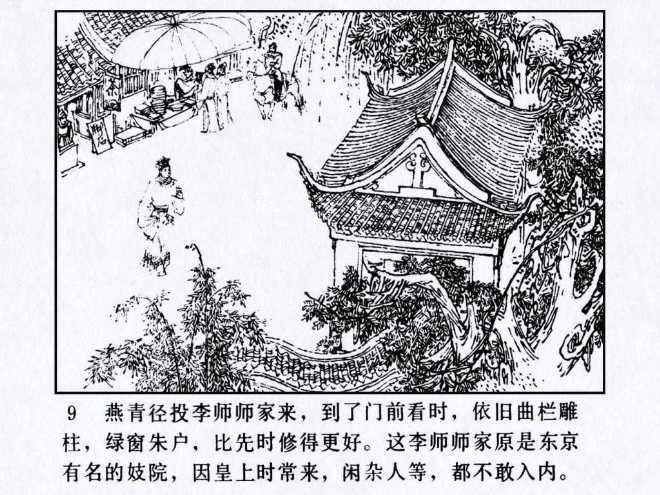 9 燕青径投李师师家来，到了门前看时，依旧曲栏雕
柱，绿窗朱户，比先时修得更好。这李师师家原是东京
有名的妓院，因皇上时常来，闲杂人等，都不敢入内。